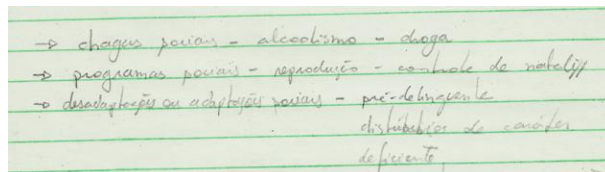 → chagas sociais - alcoolismo - droga
→ programas sociais - reprodução - controle de natalid
→ desadaptações ou adaptações sociais - pré-delinquente
distúrbios de caráter
deficiente